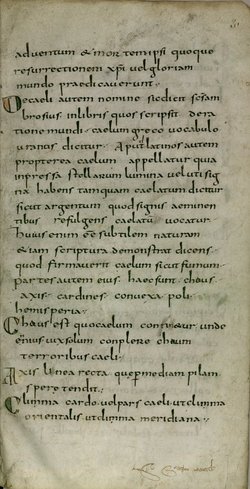 adventum & mortem ipsi quoque
resurrectionem xpi vel gloriam
mundo praedicaverunt
De caeli autem nomine sic dicit scs am
brosius in libris quos scripsit de ra
tione mundi caelum greco vocabulo
uranus dicitur Aput latinos autem
propterea caelum appellatur quia
inpressa stellarum lumina velut signa
habens tamquam caelatum dicitur
sicut argentum quod signis aeminen
tibus refulgens caelatu vocatur
huius enim ee subtilem naturam
etiam scriptura demonstrat dicens
quod firmaverit caelum sicut fumum
partes autem eius haec sunt chous
axis cardines convexa poli
hemisperia
Chous est quo caelum continetur unde
ennius vix solum conplere choum
terroribus caeli
Axis linea recta que per mediam pilam
spere tendit
Clima cardo vel pars caeli ut clima
orientalis ut clima meridiana